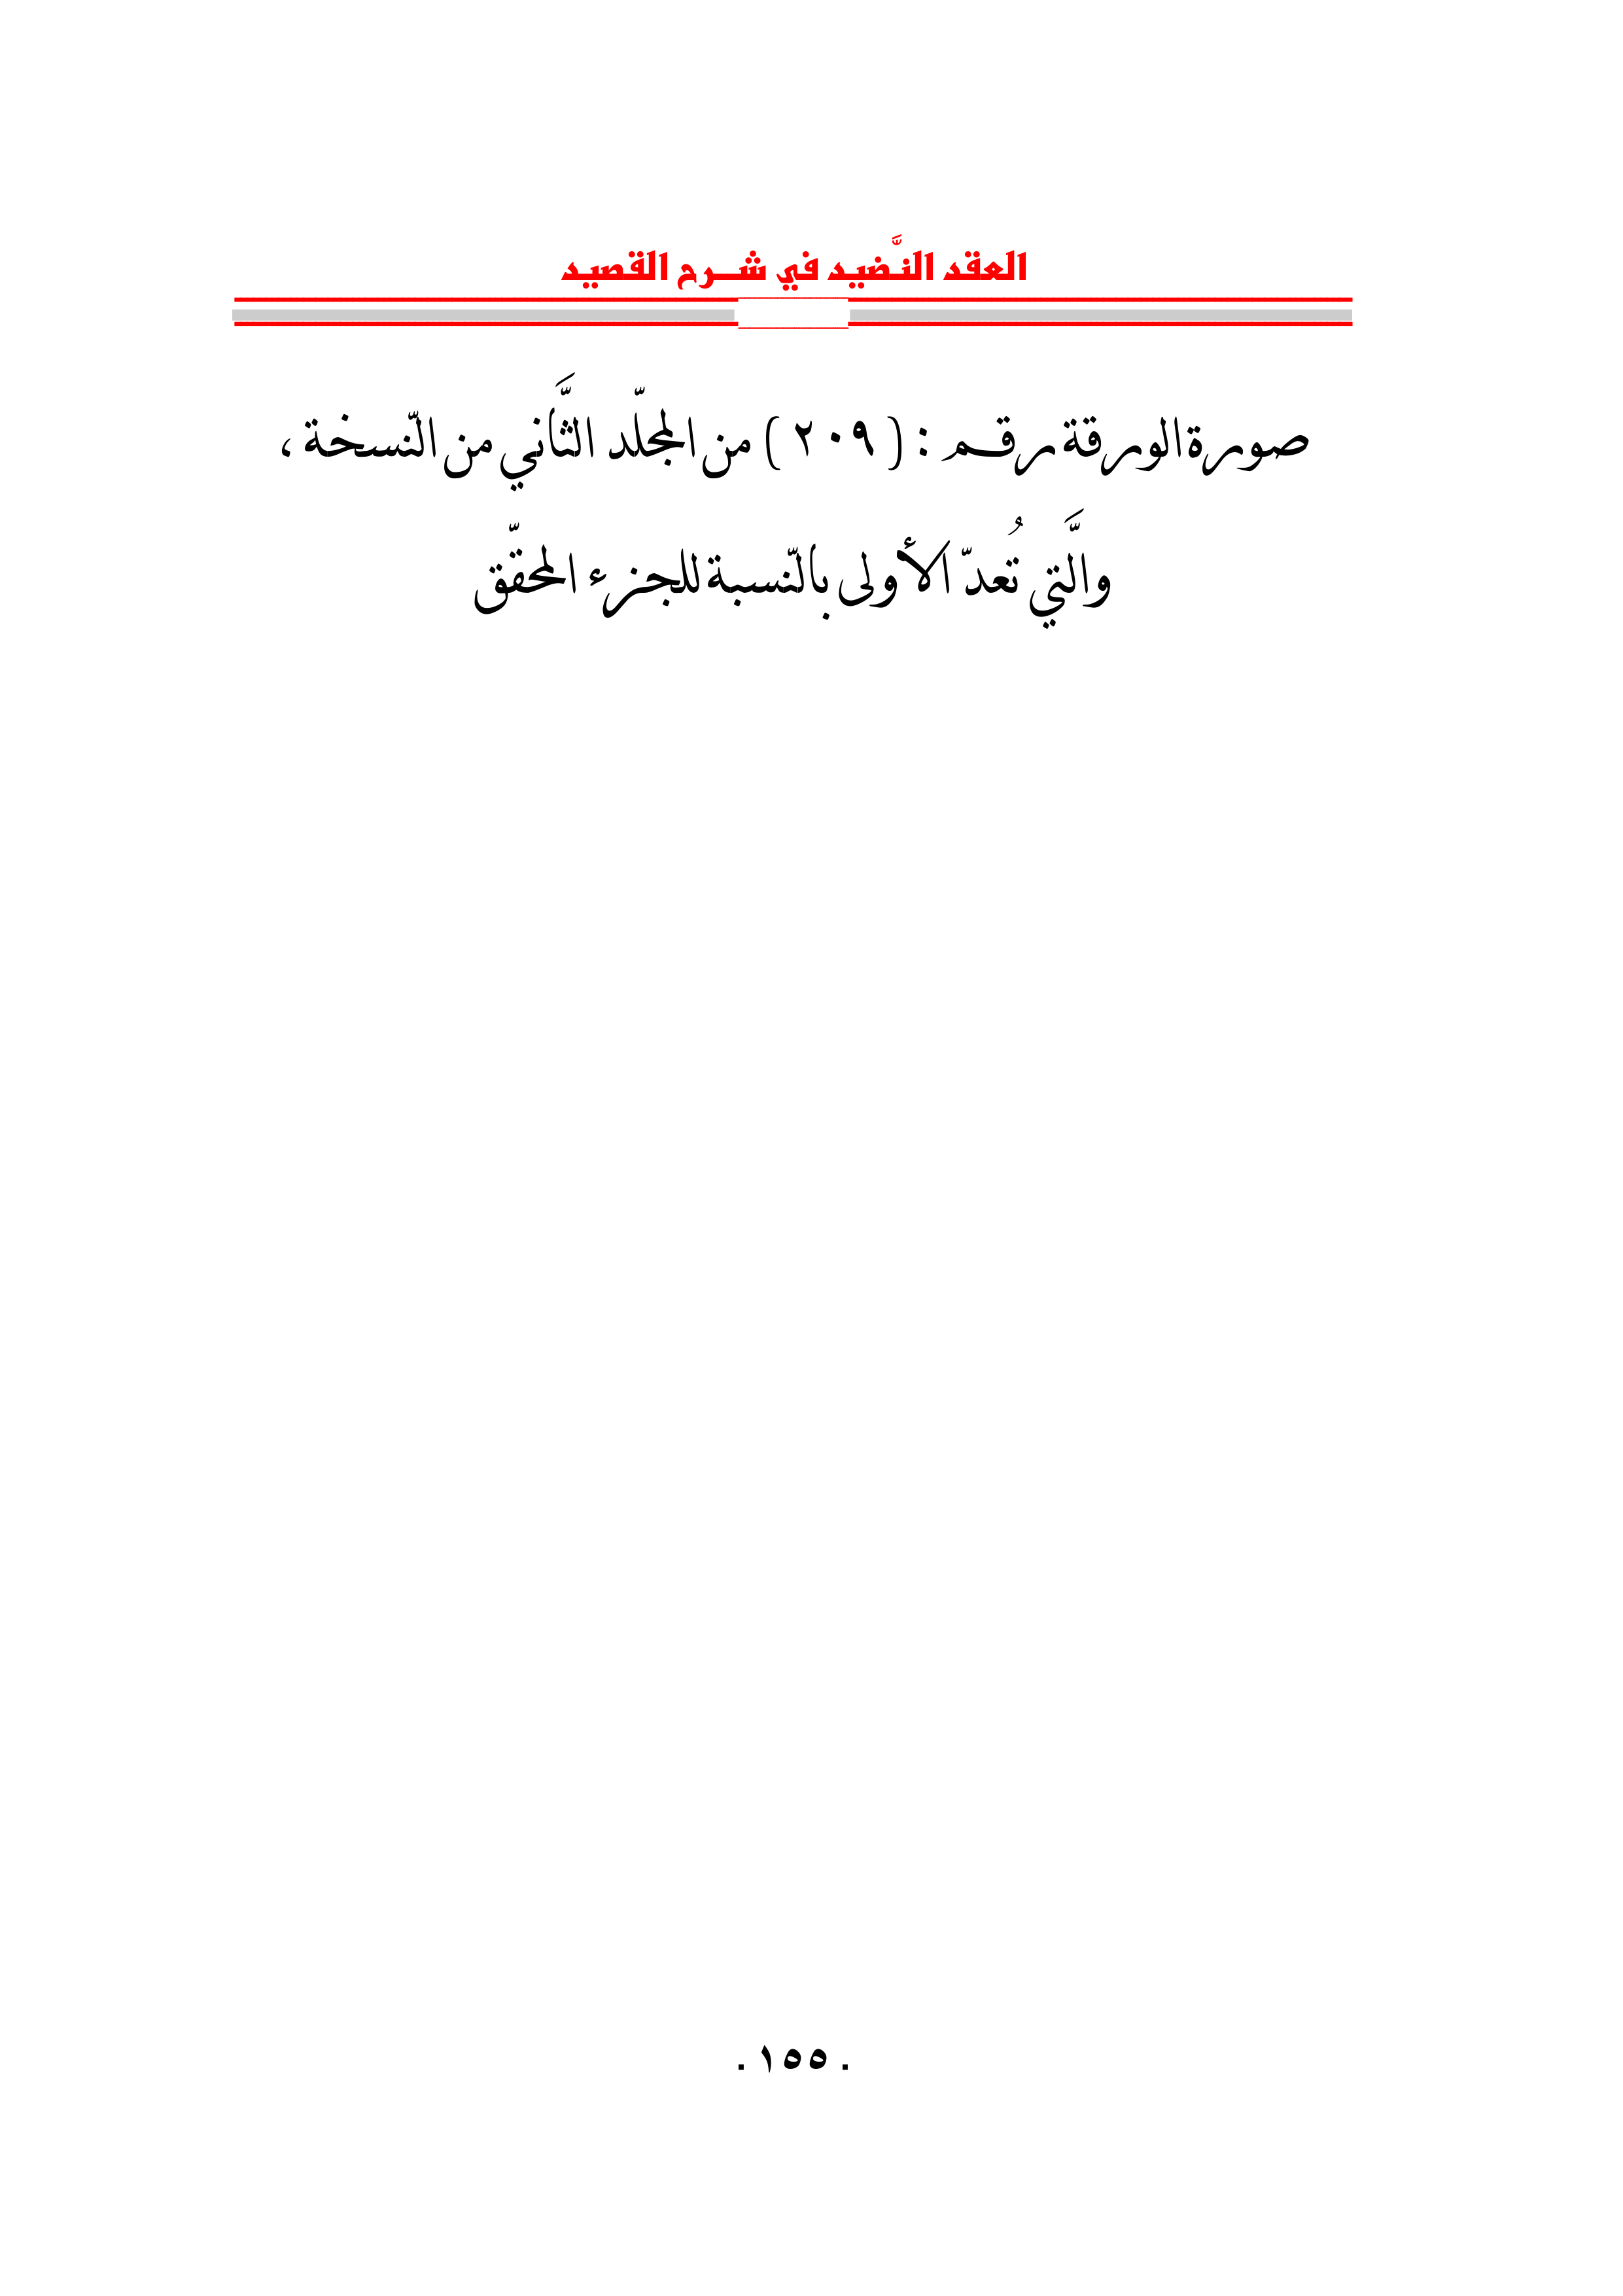 العقد النَّضيد في شرح القصيد
صورة الورقة رقم : ( ٢٠٩ ) من المجلّد الثَّاني من النّسخة ،
والَّتي تُعدّ الأولى بالنّسبة للجزء المحقّق
. ١٥٥ .